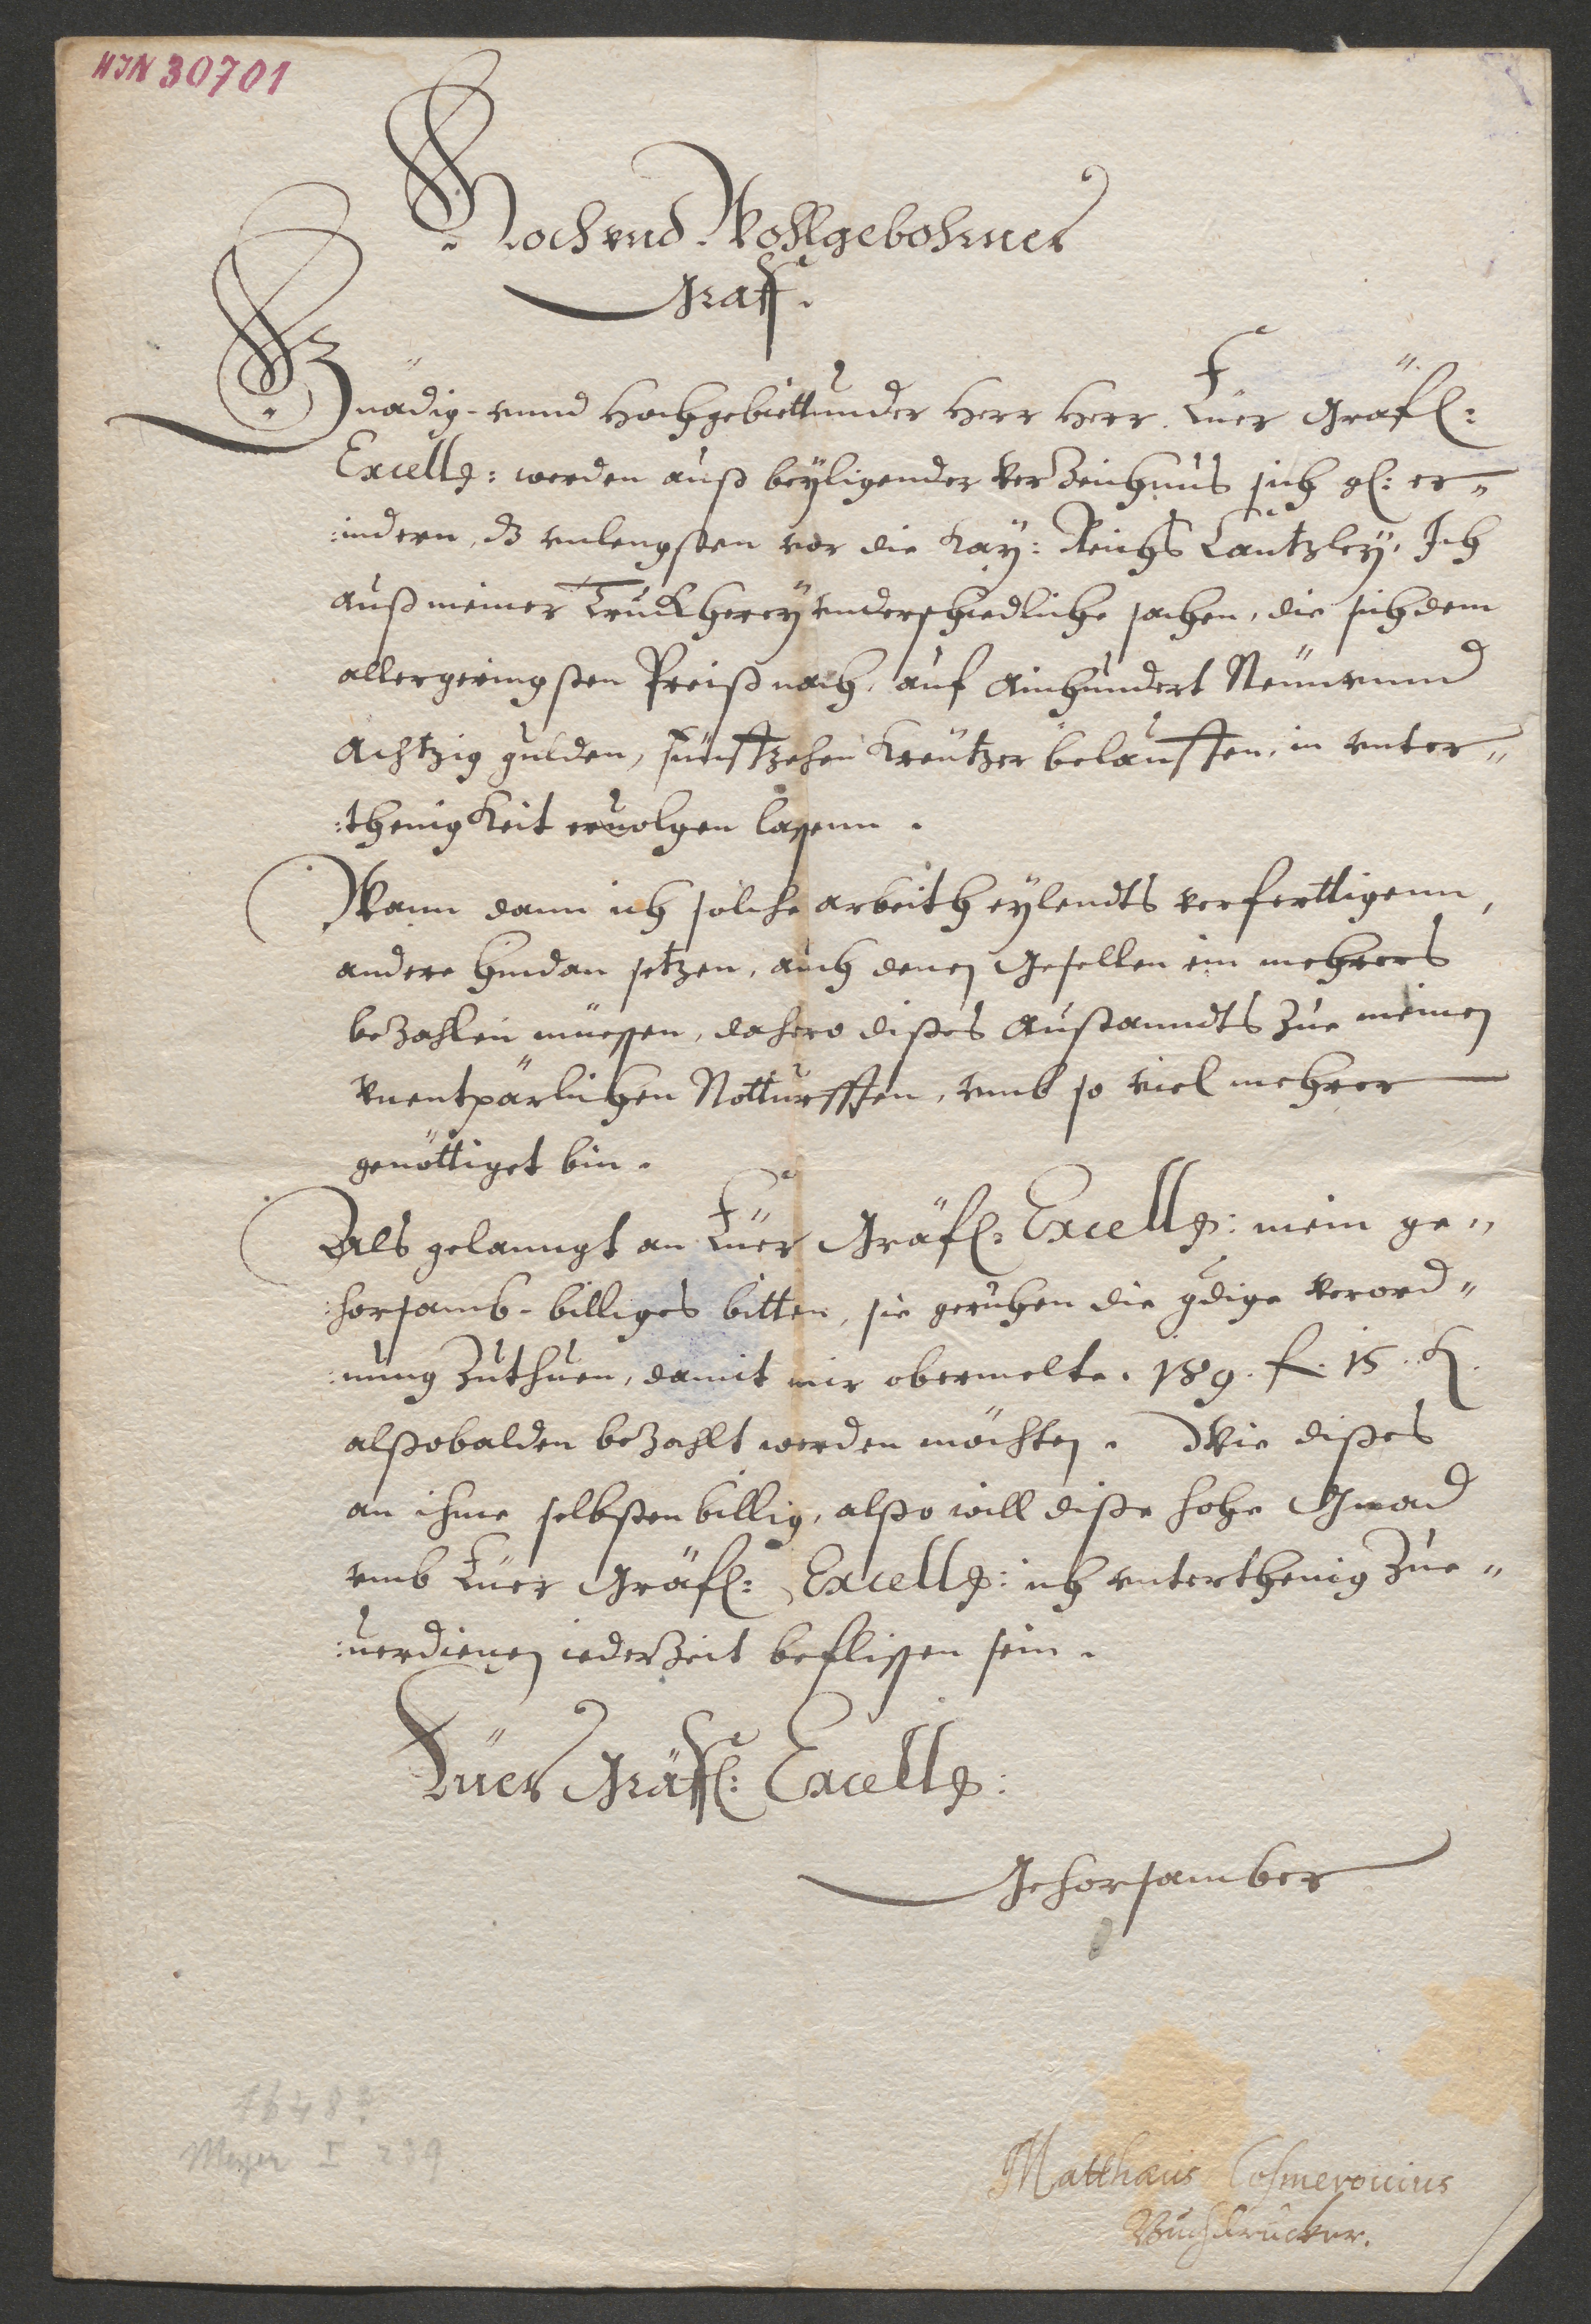 HIN 30701
Hoch vnd Wohlgebohrner
Graff.
Gnädig- vnnd Hochgebiettunder Herr Herr. Euer Gräfl:
Excellz: werden auß beyligender verzeichnus sich gl: er„
:indern, dz vnlengsten vor die Kay: Reichs Cantzley, Ich
auß meiner Truckherey vnderschiedliche sachen, die sich dem
allergeringsten Preiß nach, auf Ainhundert Neün vnnd
Achtzig gulden, fünffzehen Kreützer belauffen, in vnter„
:thenigkeit eruolgen lassenn.
Wann dann ich solche arbeith eylendts verferttigenn,
andere hindan setzen, auch denen Gesellen ein mehrers
bezahlen müessen, dahero dißes Außtanndts zue meinen
vnentpärlichen Notturfften, vmb so viel mehrer
genöttiget bin.
Als gelanngt an Euer Gräfl: Excellz: mein ge„
:horsamb-billiges bitten, sie geruhen die gdige verord„
:nung zuthuen, damit mir obermelte. 189. f. 15. K.
alßobalden bezahlt werden möchten. Wie dißes
an ihme selbsten billig, alßo will diße hohe Gnad
vmb Euer Gräfl: Excellz: ich vnterthenig zue„
:uerdienen iederzeit beflissen sein.
Euer Gräffl: Excellz:
Gehorsamber
Matthæus Cosmerouius
Buchdrucker.
1648?
Meyer I 239